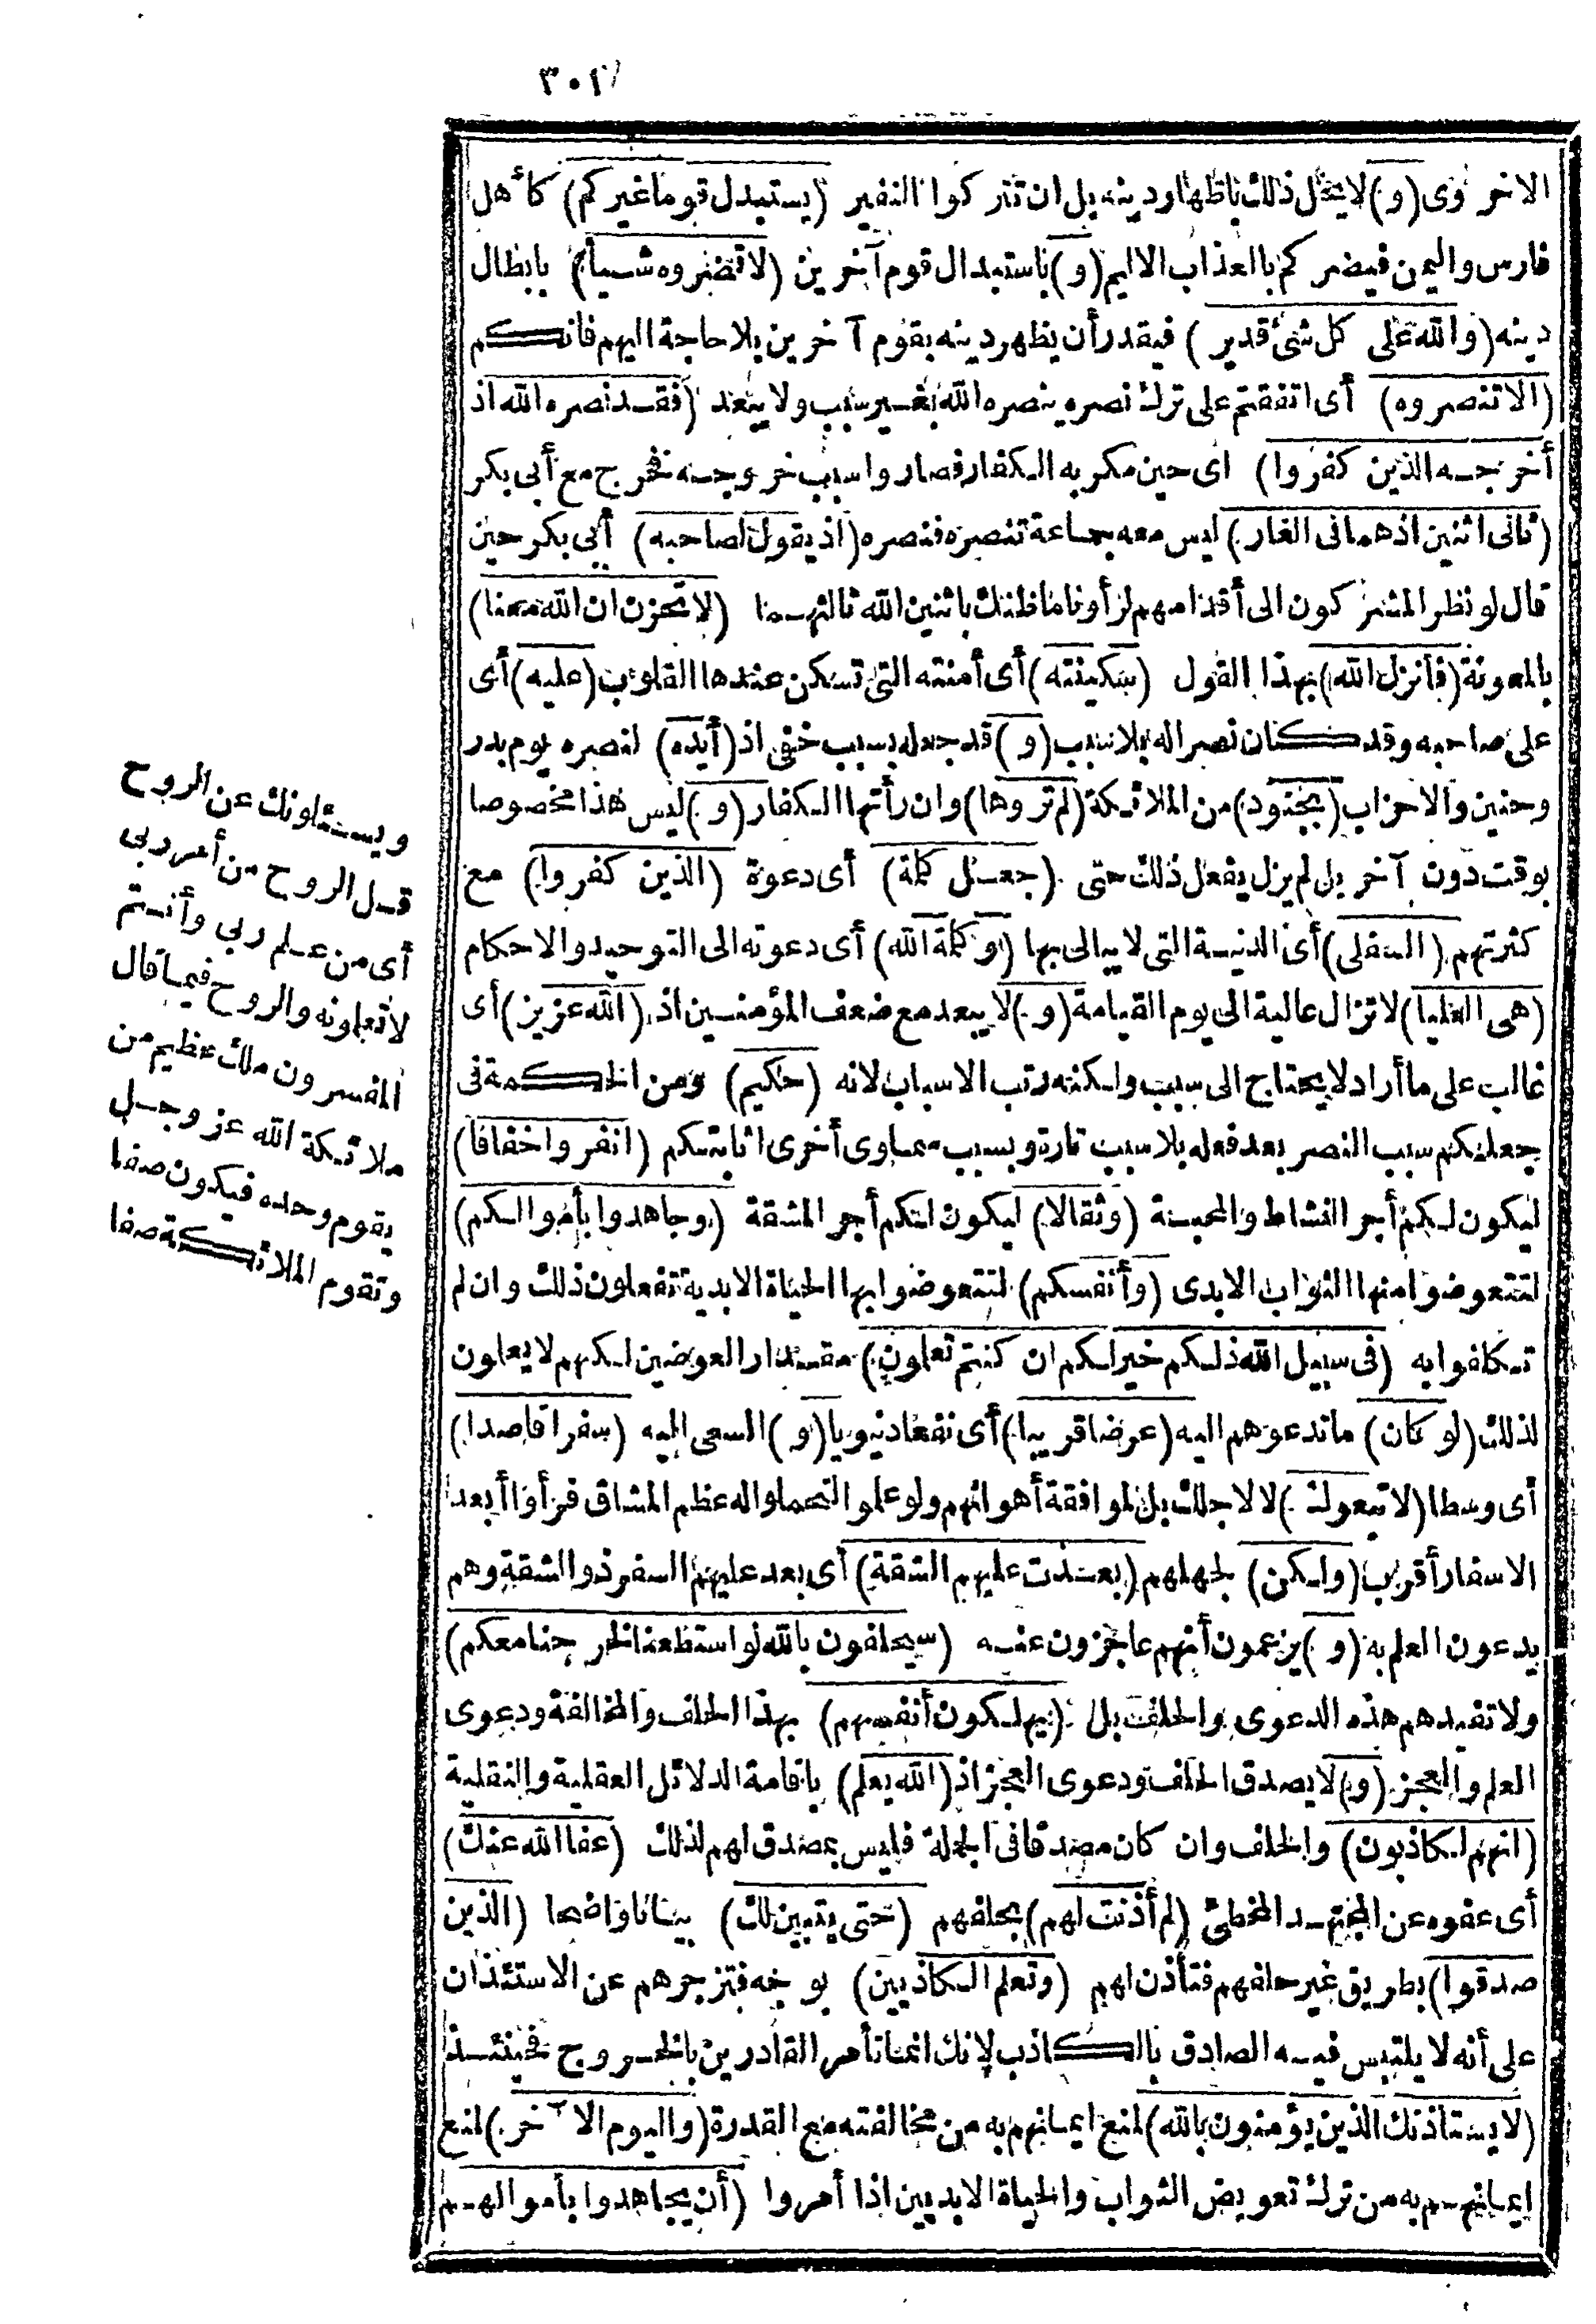 ٣٠٢
الاخروى (و) لا يخل ذلك باظهار دينه بل ان تتركوا النفير (يستبدل قوما غيركم) كأهل
فارس واليمن فيضركم بالعذاب الاليم (و) باستبدال قوم آخرين (لا تضروه شيأ) بابطال
دينه (والله على كل شئ قدير) فيقدر أن يظهر دينه بقوم آخرين بلا حاجة اليهم فانكم
(الا تنصروه) أى اتفقتم على ترك نصره ينصره الله بغير سبب ولا يبعد (فقد نصره الله اذ
أخرجه الذين كفروا) اى حين مكر به الكفار فصاروا سبب خروجه فخرج مع أبى بكر
(ثانى اثنين اذهما فى الغار) ليس معه جماعة تنصره فنصره (اذ يقول لصاحبه) أبى بكر حين
قال لو نظر المشركون الى أقدامهم لرأونا ما ظنك باثنين الله ثالثهما (لا تحزن ان الله معنا)
بالمعونة (فأنزل الله) بهذا القول (سكينته) أى أمنته التى تسكن عندها القلوب (عليه) أى
على صاحبه وقد كان نصر الله بلا سبب (و) قد جعله بسبب خفى اذ (أيده) لنصره يوم بدر
وحنين والاحزاب (بجنود) من الملائكة (لم تروها) وان رأتها الكفار (و) ليس هذا مخصوصا
بوقت دون آخر بل لم يزل يفعل ذلك حتى (جعل كلمة) أى دعوة (الذين كفروا) مع
كثرتهم (السفلى) أى الدنية التى لا يبالى بها (وكلمة الله) أى دعوته الى التوحيد والاحكام
(هى العليا) لا تزال عالية الى يوم القيامة (و) لا يبعد مع ضعف المؤمنين اذ (الله عزيز) أى
غالب على ما أراد لا يحتاج الى سبب ولكنه رتب الاسباب لانه (حكيم) ومن الحكمة فى
جعلكم سبب النصر بعد فعله بلا سبب تارة وبسبب سماوى أخرى اثابتكم (انفروا خفافا)
ليكون لكم أجر النشاط والمحبة (وثقالا) ليكون لكم أجر المشقة (وجاهدوا بأموالكم)
لتتعوضوا منها الثواب الابدى (وأنفسكم) لتتعوضوا بها الحياة الابدية تفعلون ذلك وان لم
تكلفوا به (فى سبيل الله ذلكم خير لكم ان كنتم تعلمون) مقدار العوضين لكنهم لا يعلمون
لذلك (لو كان) ما تدعوهم اليه (عرضا قريبا) أى نفعا دنيويا (و) السعى اليه (سفرا قاصدا)
أى وسطا (لا تبعوك) لا لاجلك بل لموافقة أهوائهم ولو علموا لتحملوا له عظم المشاق فرأوا أبعد
الاسفار أقرب (ولكن) لجهلهم (بعدت عليهم الشقة) أى بعد عليهم السفر ذو الشقة وهم
يدعون العلم به (و) يزعمون أنهم عاجزون عنه (سيحلفون بالله لو استطعنا لخرجنا معكم)
ولا تفيدهم هذه الدعوى والحلف بل (يهلكون أنفسهم) بهذا الحلف والمخالفة ودعوى
العلم والعجز (و) لا يصدق الحلف ودعوى العجز اذ (الله يعلم) باقامة الدلائل العقلية والنقلية
(انهم لكاذبون) والحلف وان كان مصدقا فى الجملة فليس بمصدق لهم لذلك (عفا الله عنك)
أى عفوه عن المجتهد المخطئ (لم أذنت لهم) بحلفهم (حتى يتبين لك) بيانا واضحا (الذين
صدقوا) بطريق غير حلفهم فتأذن لهم (وتعلم الكاذبين) بوجه فتزجرهم عن الاستئذان
على أنه لا يلتبس فيه الصادق بالكاذب لانك انما تأمر القادرين بالخروج فحينئذ
(لا يستاذنك الذين يؤمنون بالله) لمنع ايمانهم به من مخالفته مع القدرة (واليوم الآخر) لمنع
ايمانهم به من ترك تعويض الثواب والحياة الابديين اذا أمروا (أن يجاهدوا بأموالهم
ويسئلونك عن الروح
قل الروح من أمر ربى
أى من علم ربى وأنتم
لا تعلمونه والروح فيما قال
المفسرون ملك عظيم من
ملائكة الله عز وجل
يقوم وحده فيكون صفا
وتقوم الملائكة صفا